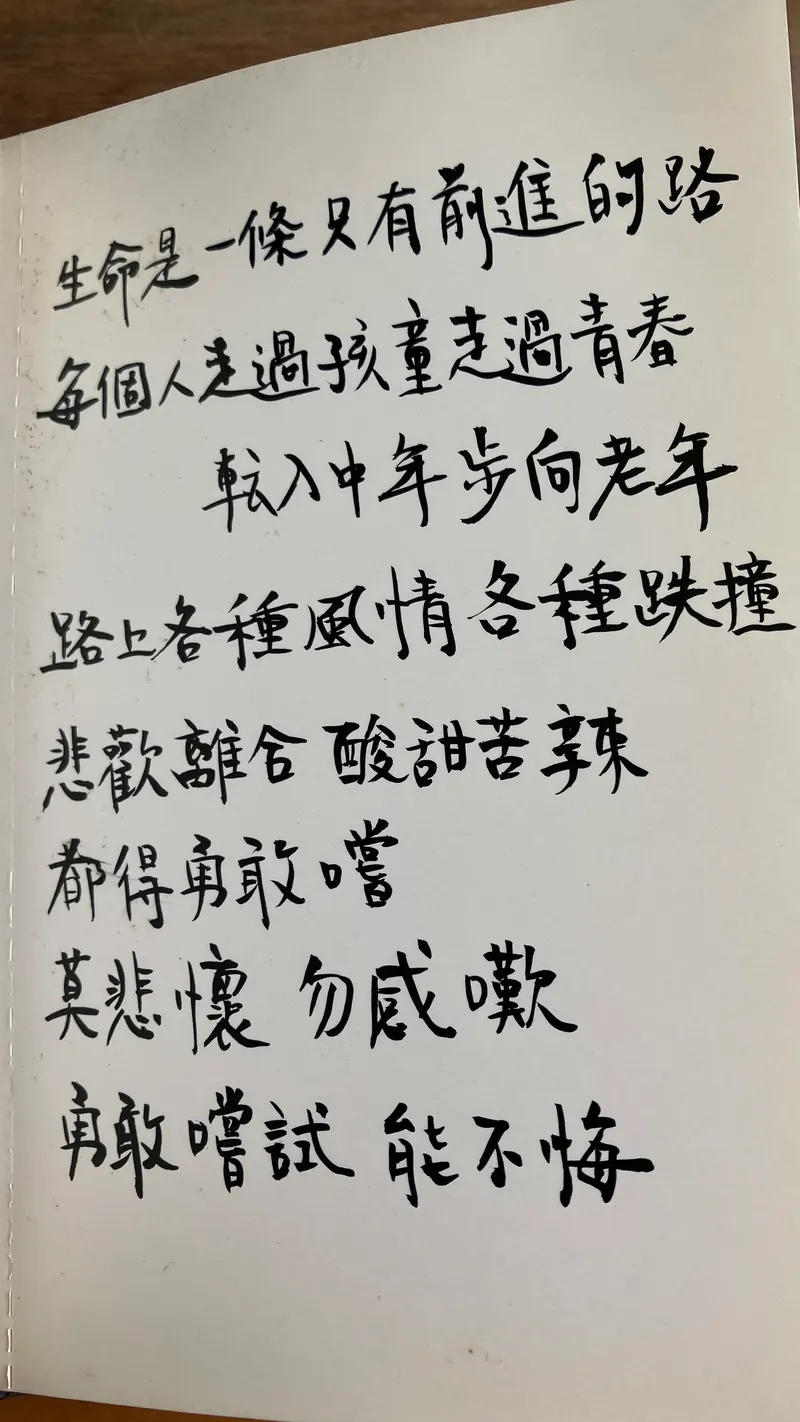 生命是一條只有前進的路
每個人走過孩童走過青春
転入中年步向老年
路上各種風情各種跌撞
悲歡離合 酸甜苦辣
都得勇敢嚐
莫悲懷 勿感嘆
勇敢嚐試 能不悔